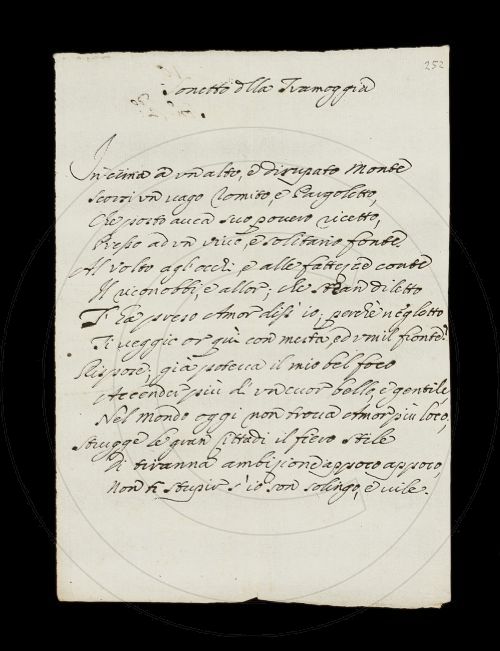 252
Sonetto dlla Tramoggia
In cima à vn alto, è dirupato Monte
Scorsi vn uago Romito, è Pargoletto,
Che posto auea suo pouero ricetto,
Presso ad vn viuo, è solitario fonte
Al volto agl'occhi, è alle fattezze conte
Il riconobbi, è allor; che stran diletto
Ti hà preso Amor diss'io; perche negletto
Ti veggio or quì con mesta, ed vmil fronte?
Rispose; già poteua il mio bel foco
Accender più d'vn cuor bello, è gentile
Nel Mondo oggi non troua Amor più loco,
Strugge le gran Cittadi il fiero stile
Di tiranna ambizione appoco appoco,
Non ti stupir s'io son solingo, è uile.